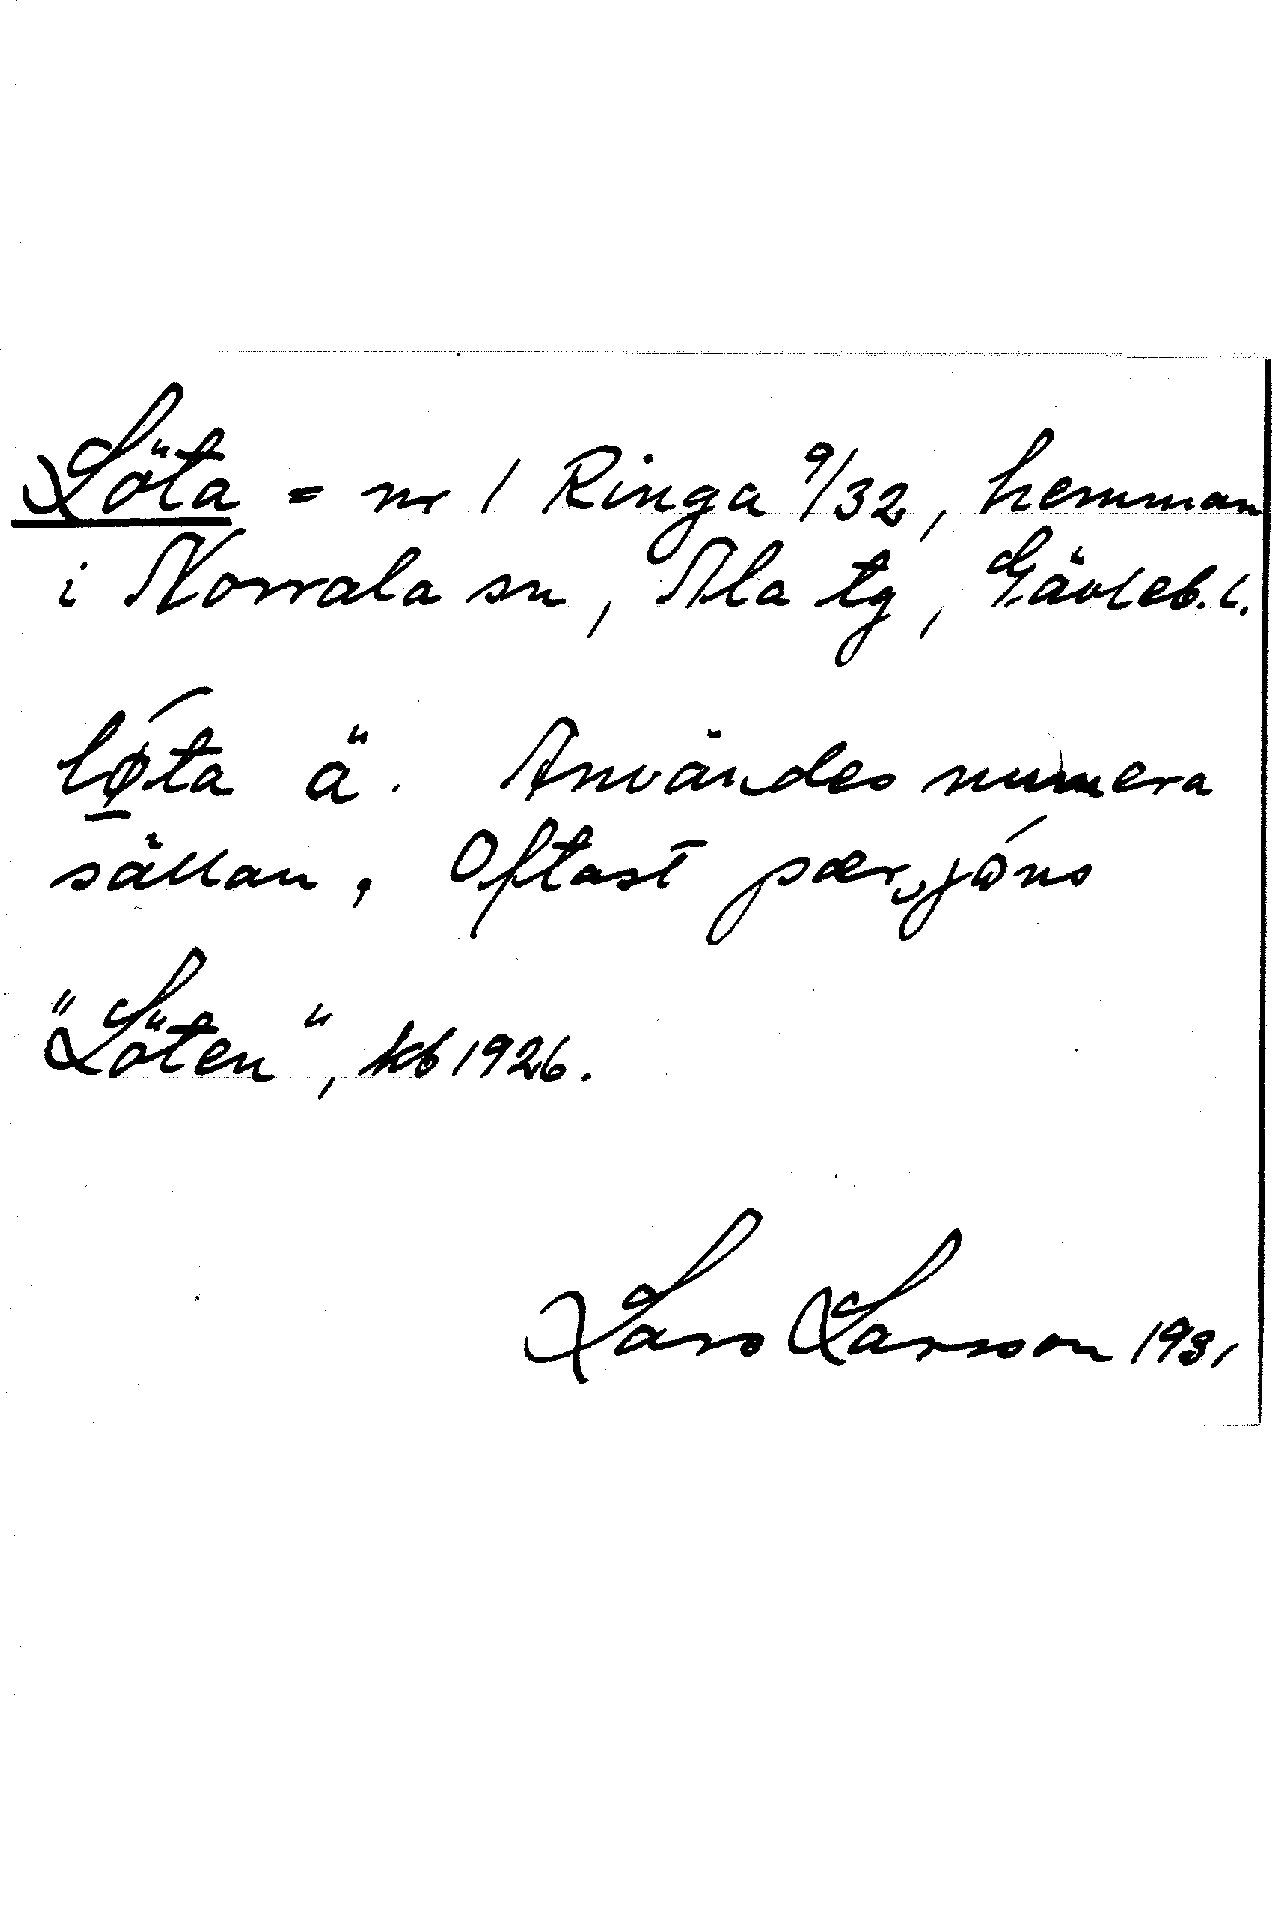 Löta = nr 1 Ringa 9/32, hemman
i Norrala sn, Ala tg, Gävleb. l.
lǿ̱ta ä. Användes numera
sällan, Oftast pær‿jǿns
"Löten", kb 1926.
Lars Larsson 1931